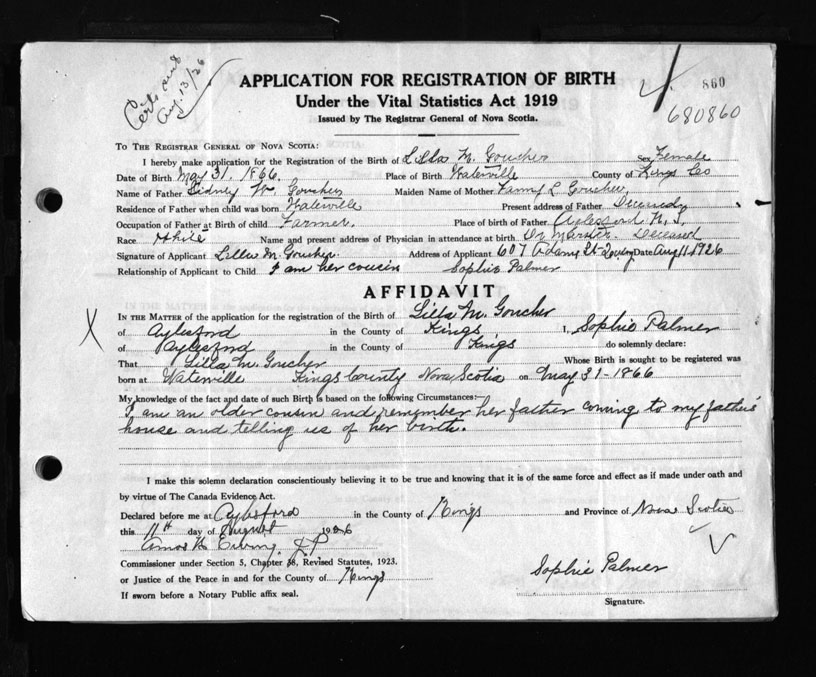 Certs and
Aug. 13/26
860
680860
APPLICATION FOR REGISTRATION OF BIRTH
Under the Vital Statistics Act 1919
Issued by The Registrar General of Nova Scotia.
TO THE REGISTRAR GENERAL OF NOVA SCOTIA:
I hereby make application for the Registration of the Birth of Lilla M. Goucher Sex Female
Date of Birth May 31. 1866. Place of Birth Waterville County of Kings Co
Name of Father Sidney W. Goucher Maiden Name of Mother Fanny L Goucher.
Residence of Father when child was born Waterville Present address of Father
Occupation of Father at Birth of child Farmer. Place of birth of Father Aylesford N.S.
Race White Name and present address of Physician in attendance at birth Dr Deceased
Signature of Applicant Lilla M. Goucher. Address of Applicant 607 Adams St Date Aug 11 1926
Relationship of Applicant to Child I am her cousin Sophie Palmer
AFFIDAVIT
IN THE MATTER of the application for the registration of the Birth of Lilla M. Goucher
of Aylesford in the County of Kings I, Sophie Palmer
of Aylesford in the County of Kings do solemnly declare:
That Lilla M. Goucher Whose Birth is sought to be registered was
born at Waterville Kings County Nova Scotia on May 31-1866
My knowledge of the fact and date of such Birth is based on the following Circumstances:
I am an older cousin and remember her father coming to my father's
house and telling us of her birth.
I make this solemn declaration conscientiously believing it to be true and knowing that it is of the same force and effect as if made under oath and
by virtue of The Canada Evidence Act.
Declared before me at Aylesford in the County of Kings and Province of Nova Scotia
this 11th day of August 1926
Amos J P
Commissioner under Section 5, Chapter 38, Revised Statutes, 1923.
or Justice of the Peace in and for the County of Kings
If sworn before a Notary Public affix seal.
Sophie Palmer
Signature.